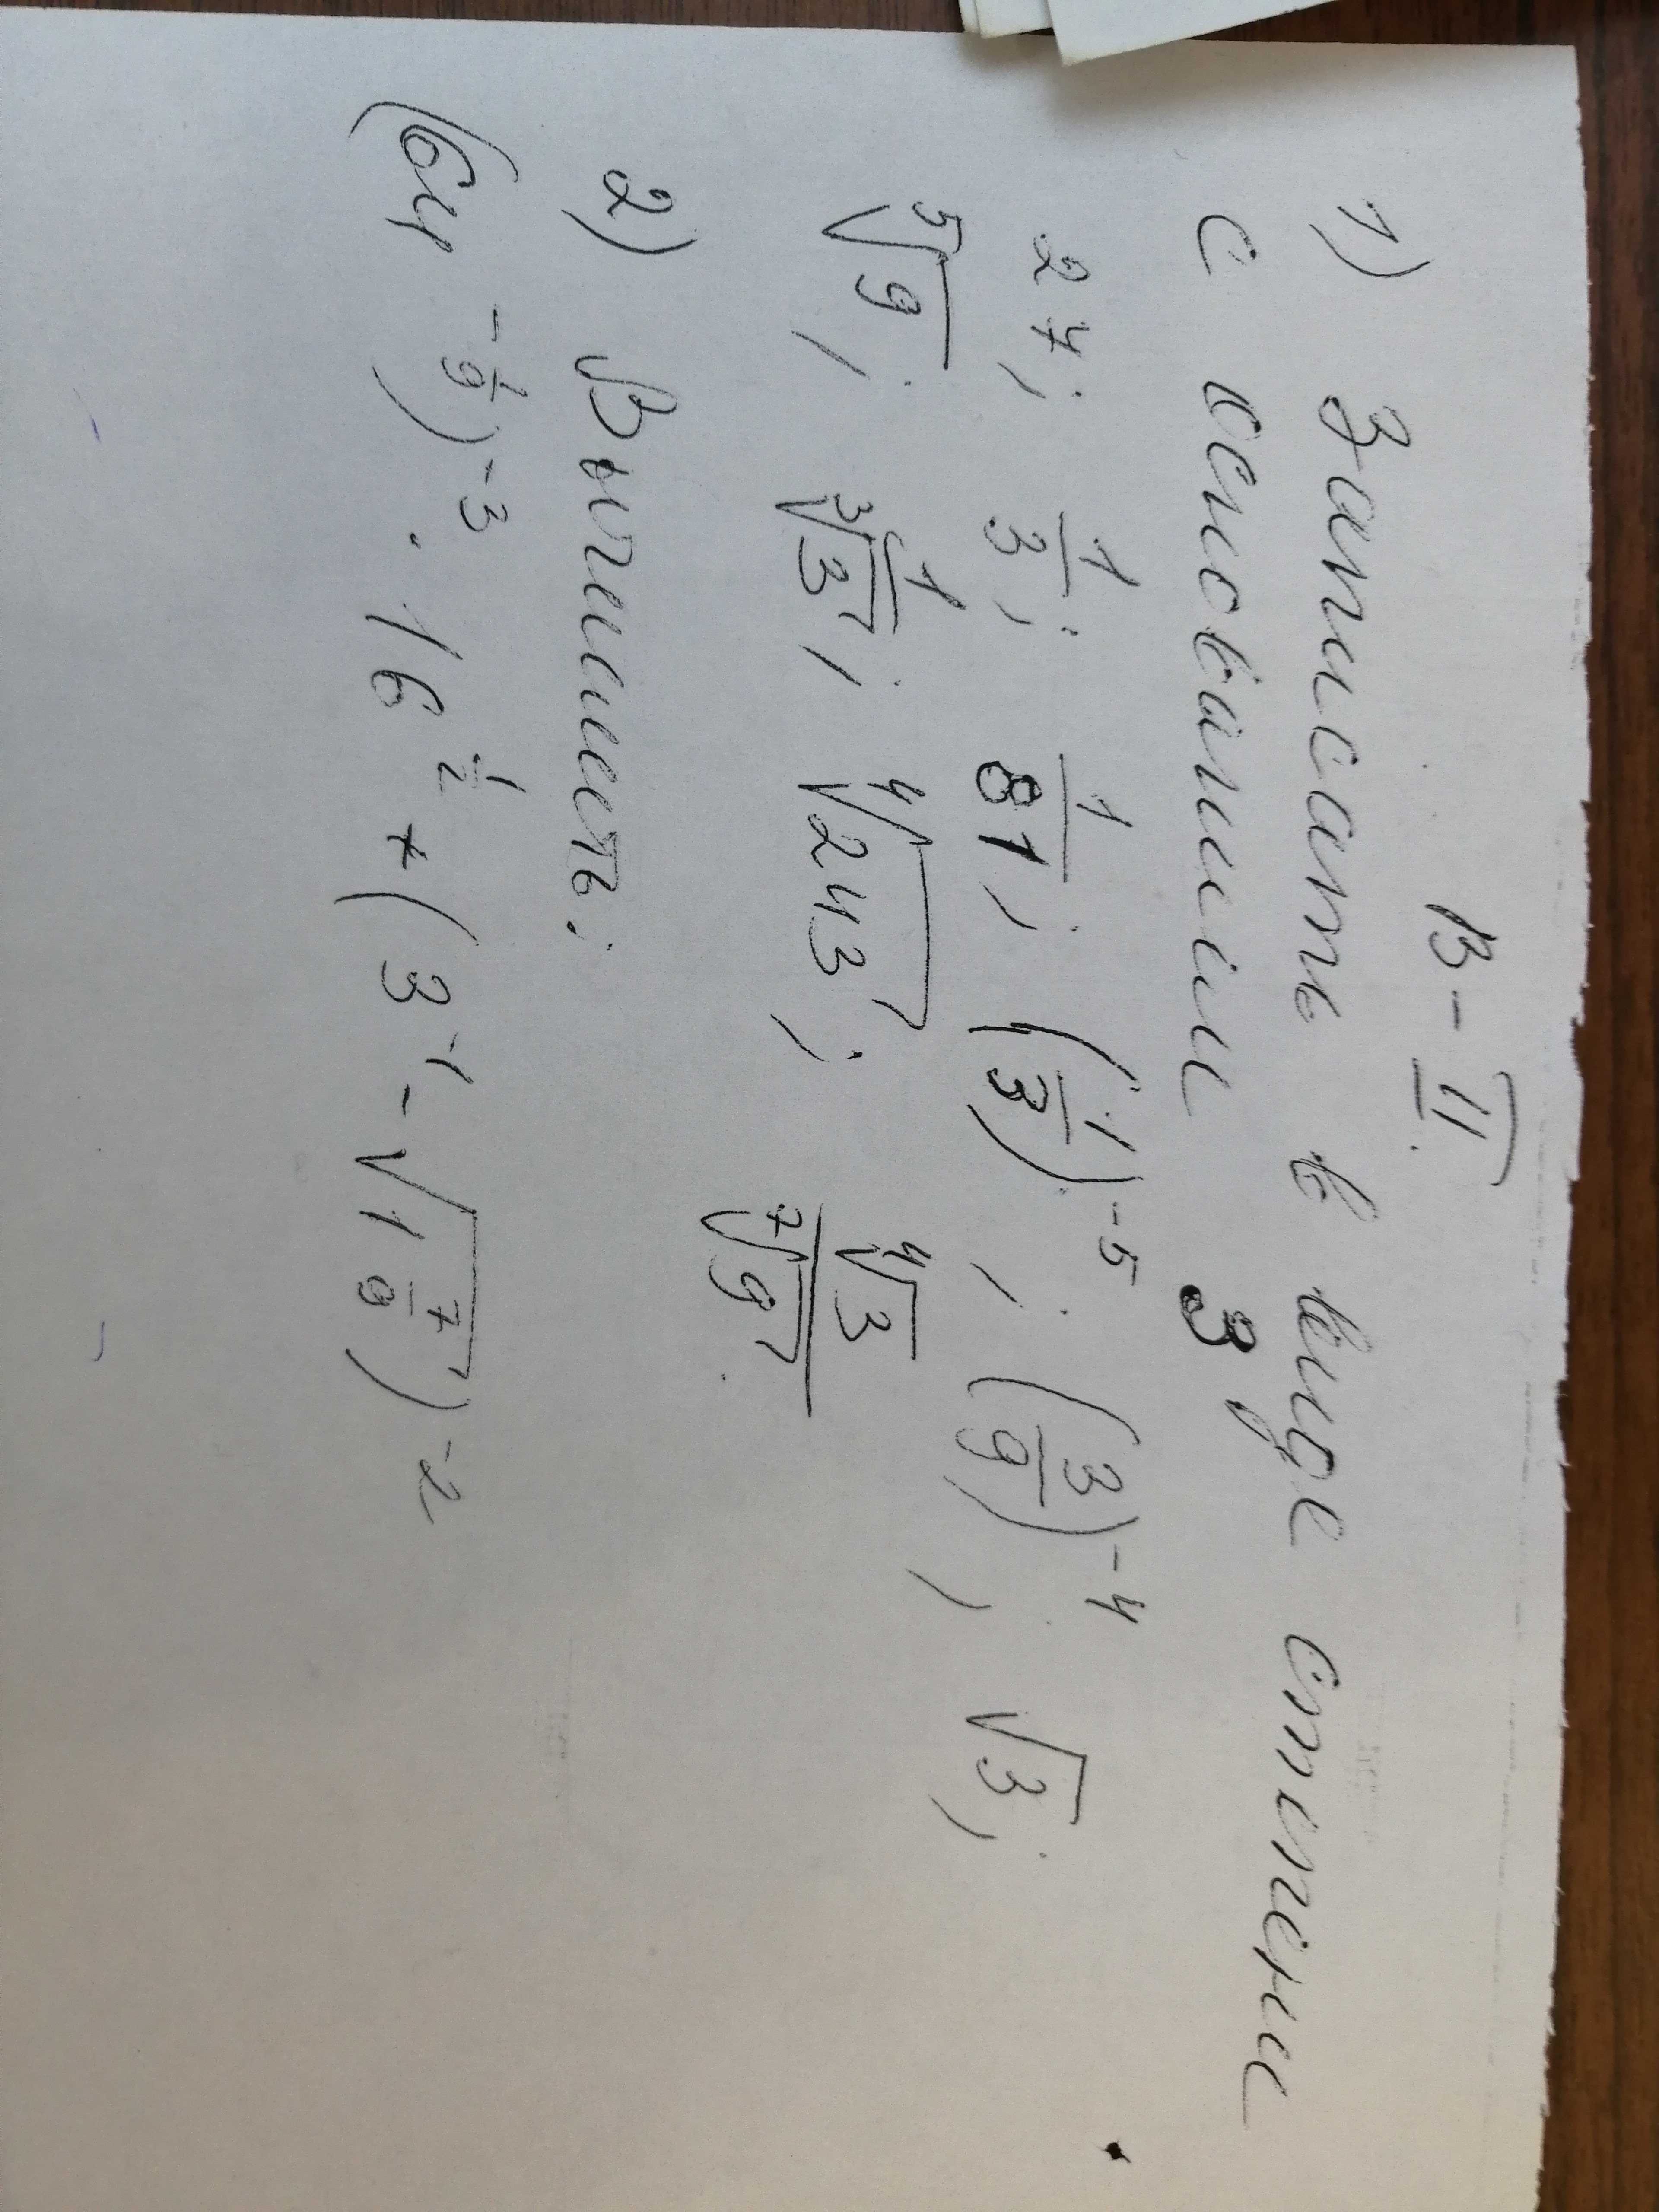 В-II
1) Записать в виде степени
с основанием 3
27; 1/3; 1/81; (1/3)^-5; (3/9)^-4; √3;
⁵√9; 1/³√3; ⁴√243; ⁴√3/⁷√9.
2) Вычислить:
(64^-1/9)^-3 · 16^1/2 + (3^-1 - √1 7/9)^-2